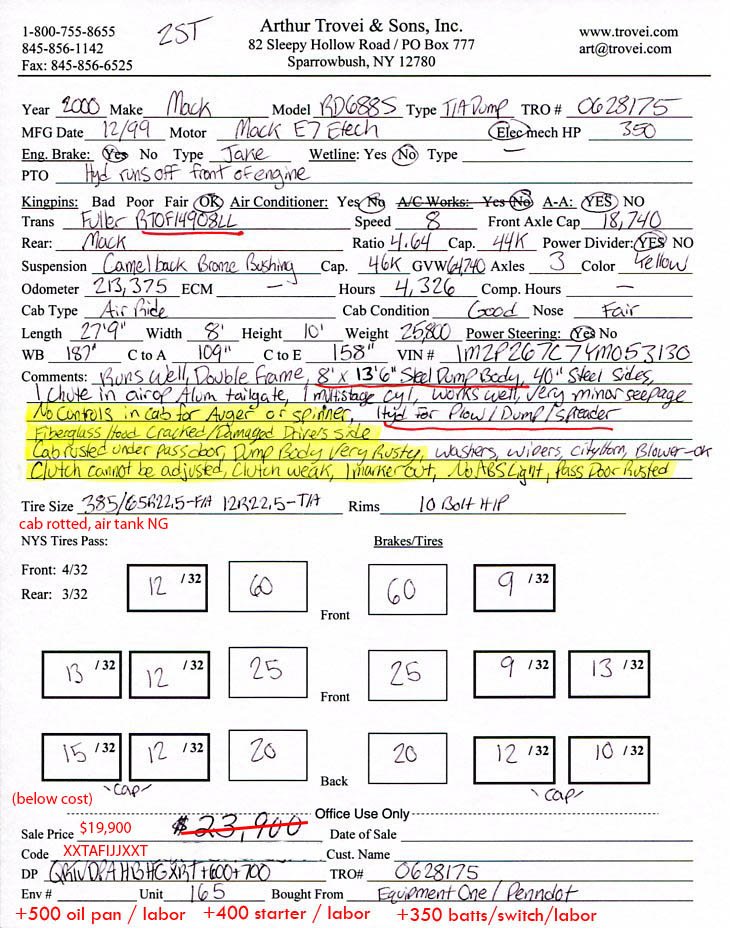 1-800-755-8655
845-856-1142
Fax: 845-856-6525
2ST
Arthur Trovei & Sons, Inc.
82 Sleepy Hollow Road / PO Box 777
Sparrowbush, NY 12780
www.trovei.com
art@trovei.com
Year 2000 Make Mack Model RD688S Type T/A Dump TRO # 0628175
MFG Date 12/99 Motor Mack E7 Etech Elec mech HP 350
Eng. Brake: Yes No Type Jake Wetline: Yes No Type —
PTO Hyd runs off front of engine
Kingpins: Bad Poor Fair OK Air Conditioner: Yes No A/C Works: Yes No A-A: YES NO
Trans Fuller RTOF14908LL Speed 8 Front Axle Cap 18,740
Rear: Mack Ratio 4.64 Cap. 44K Power Divider: YES NO
Suspension Camelback Bronze Bushing Cap. 46K GVW 64,740 Axles 3 Color Yellow
Odometer 213,375 ECM — Hours 4,326 Comp. Hours —
Cab Type Air Ride Cab Condition Good Nose Fair
Length 27'9" Width 8' Height 10' Weight 25,800 Power Steering: Yes No
WB 187" C to A 109" C to E 158" VIN # 1M2P267C7YM053130
Comments: Runs Well, Double Frame, 8' x 13'6" Steel Dump Body, 40" Steel Sides,
1 chute in airop Alum tailgate, 1 multistage cyl, works well, very minor seepage
No Controls in cab for Auger or spinner, 1 Hyd for Plow/Dump/Spreader
Fiberglass Hood Cracked/Damaged Drivers Side
Cab rusted under pass door, Dump Body Very Rusty, washers, wipers, city horn, Blower-ok
Clutch cannot be adjusted, Clutch weak, 1 marker out, No ABS Light, Pass Door Rusted
Tire Size 385/65R22.5-F/A 12R22.5-T/A Rims 10 Bolt H/P
cab rotted, air tank NG
NYS Tires Pass: Brakes/Tires
Front: 4/32
Rear: 3/32
12 /32 60 60 9 /32
Front
13 /32 12 /32 25 25 9 /32 13 /32
Front
15 /32 12 /32 20 20 12 /32 10 /32
Back
cap cap
(below cost)
Office Use Only
Sale Price $19,900 $23,900 Date of Sale
Code XXTAFIJJXXT Cust. Name
DP +600+700 TRO# 0628175
Env # Unit 165 Bought From Equipment One / Penndot
+500 oil pan / labor +400 starter / labor +350 batts/switch/labor